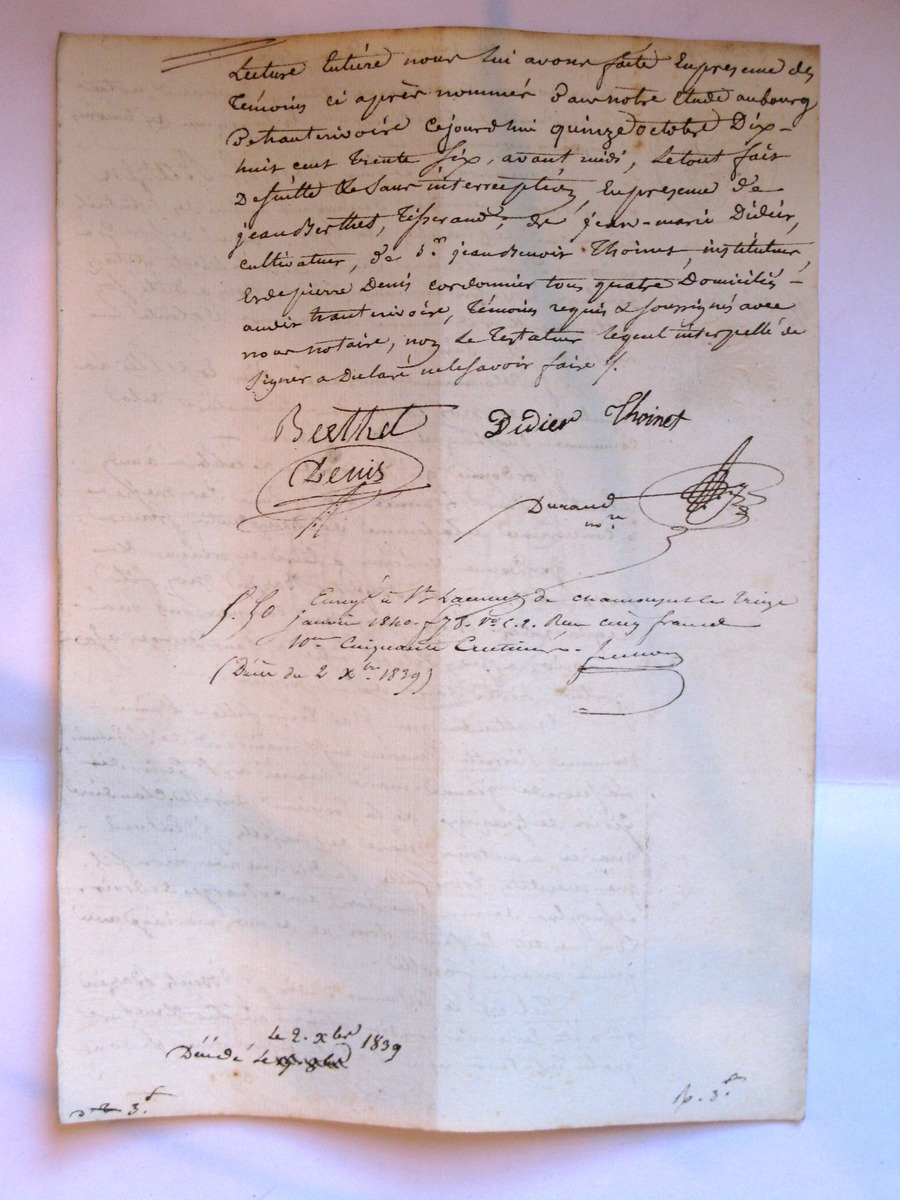 Lecture Entière nous lui avons faite En presence des
Témoins ci après nommés Dans notre étude au bourg
De hauterivoire Cejourd'hui quinze octobre Dix-
huit cent Trente Six, avant midi, Le tout fait
De suitte & sans interreception, En presence De
jean Berthet, Tisserand, de jean-marie Didier,
cultivateur, De Sr. jean Benoit Thoinet, instituteur,
Et de pierre Denis cordonnier tous quatre Domiciliés
audit hauterivoire, Témoins requis & soussignés avec
nous notaire, non Le Testateur lequel interpellé de
signer a Declaré ne le savoir faire /.
Berthet Didier Thoinet
Denis
Durand
nore
5. 50 Enregé à St Laurent de chamousset le Treize
janvier 1840. f 78. Vo C. 2. Reçu cinq francs
10me Cinquante Centimes.
(Décés du 2 Xbre 1839)
Le 2. Xbre 1839
Décédé Le
3.f
3.f